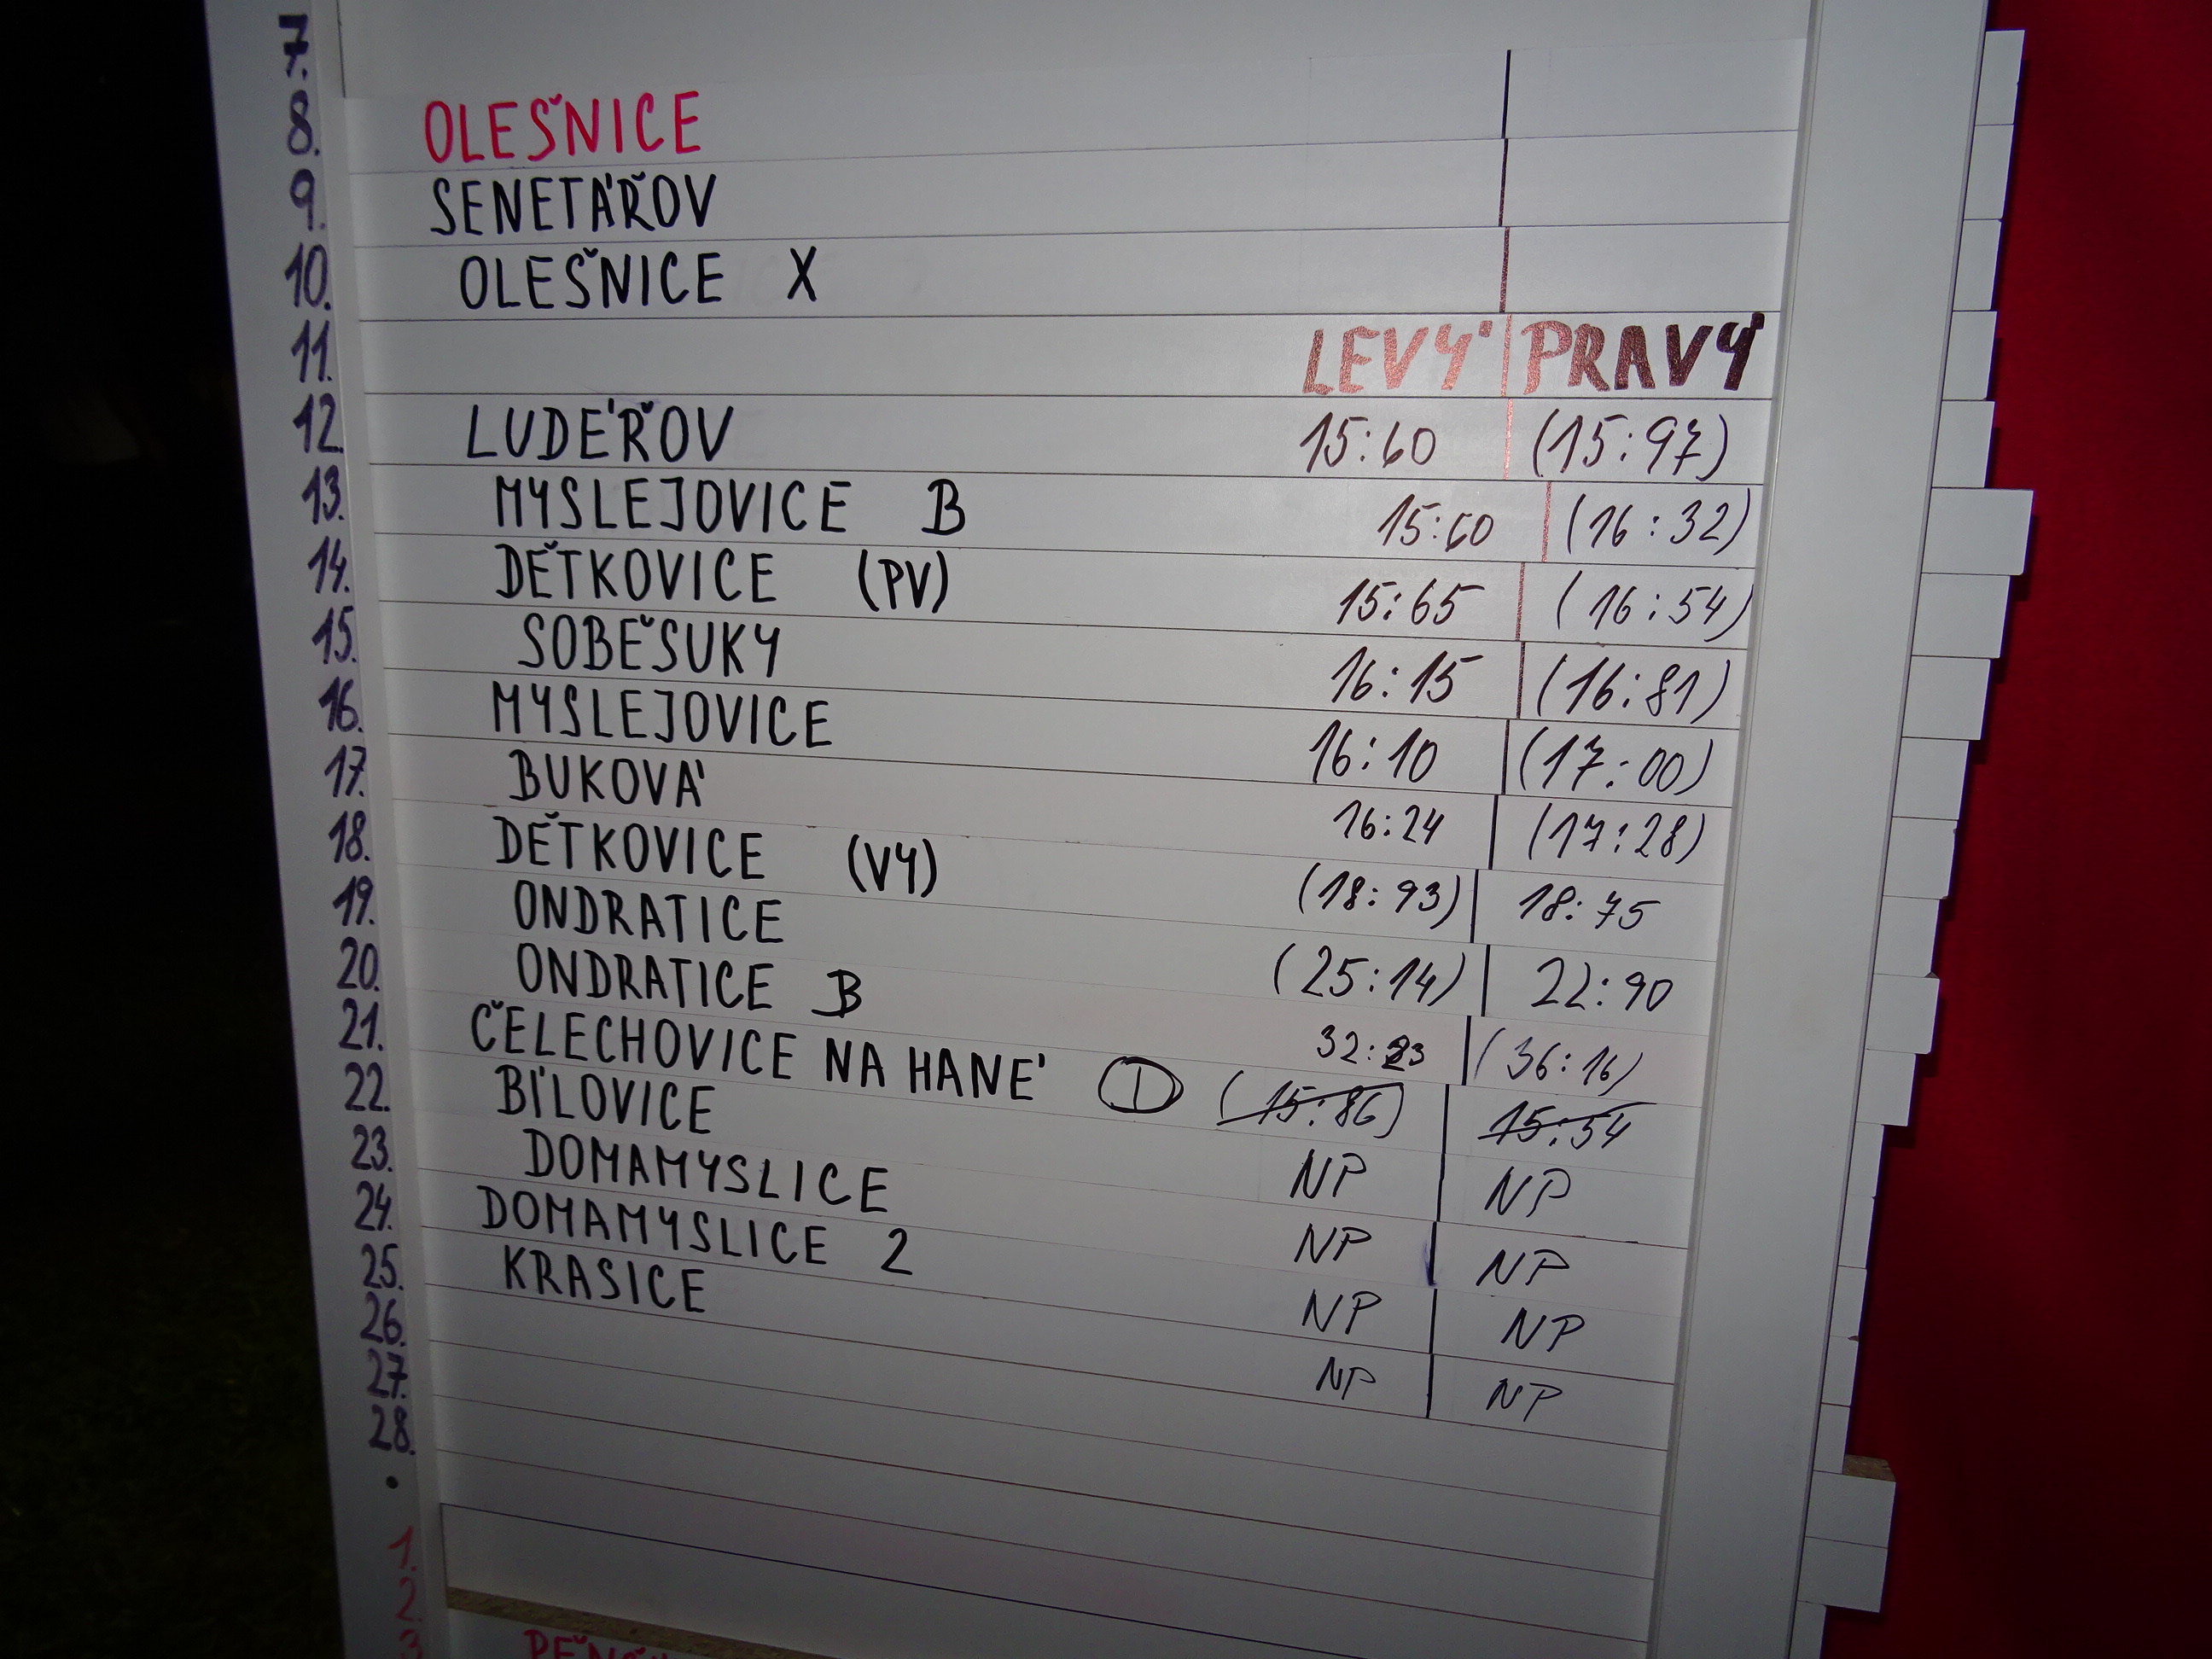 7.
8. OLEŠNICE
9. SENETÁŘOV
10. OLEŠNICE X
11. LEVÝ PRAVÝ
12. LUDÉŘOV 15:60 (15:97)
13. MYSLEJOVICE B 15:60 (16:32)
14. DĚTKOVICE (PV) 15:65 (16:54)
15. SOBĚSUKY 16:15 (16:81)
16. MYSLEJOVICE 16:10 (17:00)
17. BUKOVÁ 16:24 (17:28)
18. DĚTKOVICE (VY) (18:93) 18:75
19. ONDRATICE (25:14) 22:90
20. ONDRATICE B 32:23 (36:16)
21. ČELECHOVICE NA HANÉ 1 (15:86) 15:54
22. BÍLOVICE NP NP
23. DOMAMYSLICE NP NP
24. DOMAMYSLICE 2 NP NP
25. KRASICE NP NP
26.
27.
28.
1.
2.
3